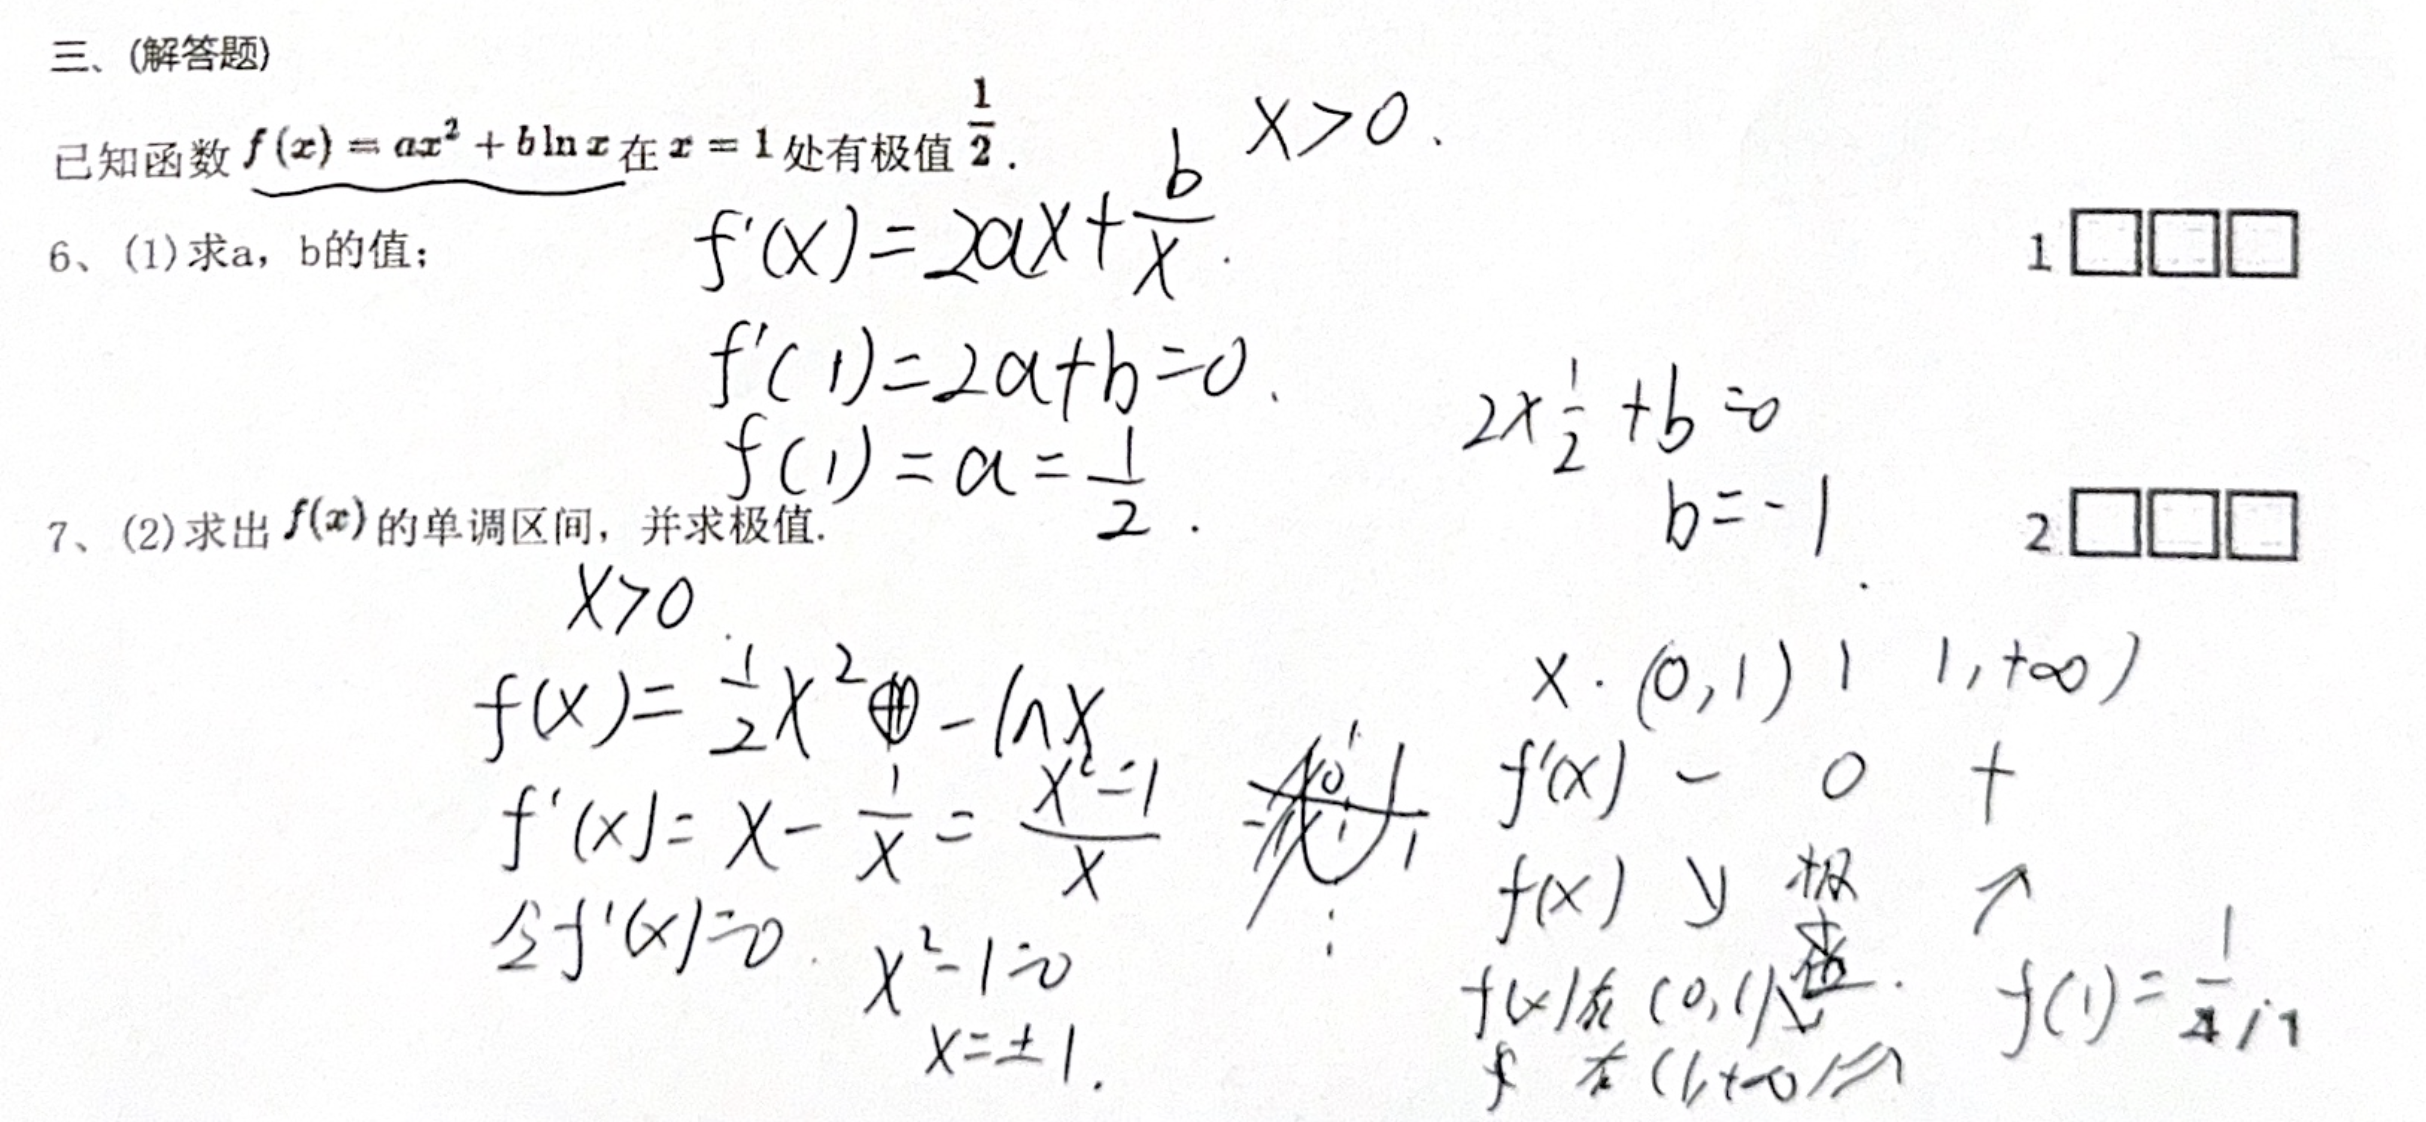 三、(解答题)
已知函数 f(x) = ax² + b ln x 在 x = 1 处有极值 1/2 .
x>0.
6、(1)求a，b的值；
f'(x)=2ax+b/x.
1
f'(1)=2a+b=0.
f(1)=a=1/2.
2×1/2+b=0
b=-1
7、(2)求出 f(x) 的单调区间，并求极值.
2
x>0
f(x)=1/2x²-lnx
f'(x)=x-1/x=x²-1/x
令f'(x)=0.
x²-1=0
x=±1.
x. (0,1) 1 1,+∞)
f'(x) - 0 +
f(x) ↘ 极 ↗
f(x)在(0,1)↘
f 在(1,+∞)↗
f(1)=